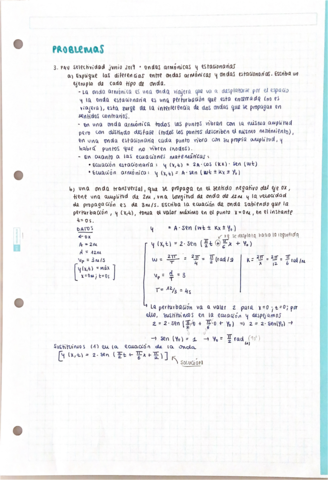 PROBLEMAS
3. PAU Selectividad junio 2019 - ondas armónicas y estacionarias
a) Explique las diferencias entre ondas armónicas y ondas estacionarias. Escriba un
ejemplo de cada tipo de onda.
- La onda armónica es una onda viajera que va a desplazarse por el espacio
y la onda estacionaria es una perturbación que está encerrada (no es
viajera), esta surge de la interferencia de dos ondas que se propagan en
sentidos contrarios.
- En una onda armónica todos los puntos vibran con la misma amplitud
pero con distinto desfase (todos los puntos describen el mismo movimiento),
en una onda estacionaria cada punto vibra con su propia amplitud, y
habrá puntos que no vibren (nodos).
- En cuanto a las ecuaciones matemáticas:
• Ecuación estacionaria: y (x,t) = 2A · cos (kx) · sen (wt)
• Ecuación armónica: y (x,t) = A · sen (wt ± kx ± φ₀)
b) Una onda transversal, que se propaga en el sentido negativo del eje OX,
tiene una amplitud de 2m, una longitud de onda de 12m y la velocidad
de propagación es de 3m/s. Escriba la ecuación de onda sabiendo que la
perturbación, y (x,t), toma el valor máximo en el punto x=0m, en el instante
t=0s.
DATOS
← ox
A = 2m
λ = 12m
Vp = 3m/s
y(x,t) = máx
x=0m; t=0s
y = A · sen (wt ± kx ± φ₀)
y (x,t) = 2 · sen (π/2 t + π/6 x + φ₀)
w = 2π/T = 2π/4 = π/2 rad/s
k = 2π/λ = 2π/12 = π/6 rad/m
Vp = λ/T = 3
T = 12/3 = 4s
La perturbación va a valer 2 para x=0; t=0; por
ello, sustituimos en la ecuación y despejamos
2 = 2 · sen (π/2 · 0 + π/6 · 0 + φ₀) → 2 = 2 · sen φ₀ →
→ sen (φ₀) = 1 → φ₀ = π/2 rad
Sustituimos en la ecuación de la onda
[y (x,t) = 2 · sen (π/2 t + π/6 x + π/2)]
SOLUCIÓN